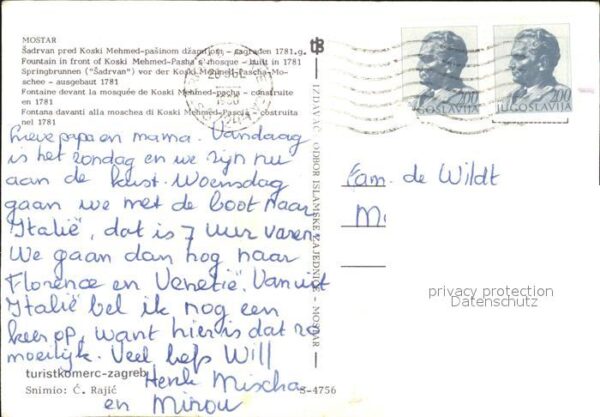 MOSTAR
Šadrvan pred Koski Mehmed-pašinom džamijom - sagrađen 1781.g.
Fountain in front of Koski Mehmed-Pasha's mosque - built in 1781
Springbrunnen ("Šadrvan") vor der Koski Mehmed-Pascha-Mo-
schee - ausgebaut 1781
Fontaine devant la mosquée de Koski Mehmed-pacha - construite
en 1781
Fontana davanti alla moschea di Koski Mehmed-Pascià - costruita
nel 1781
lieve papa en mama. Vandaag
is het zondag en we zijn nu
aan de kust. Woensdag
gaan we met de boot naar
Italië, dat is 7 uur varen.
We gaan dan nog naar
Florence en Venetië. Vanuit
Italië bel ik nog een
keer op, want hier is dat zo
moeilijk. Veel liefs Will
Henk Mischa
en Minou
turistkomerc-zagreb
Snimio: Č. Rajić
S-4756
IZDAVAČ: ODBOR ISLAMSKE ZAJEDNICE - MOSTAR
2.00
JUGOSLAVIJA
2.00
JUGOSLAVIJA
Fam. de Wildt
privacy protection
Datenschutz